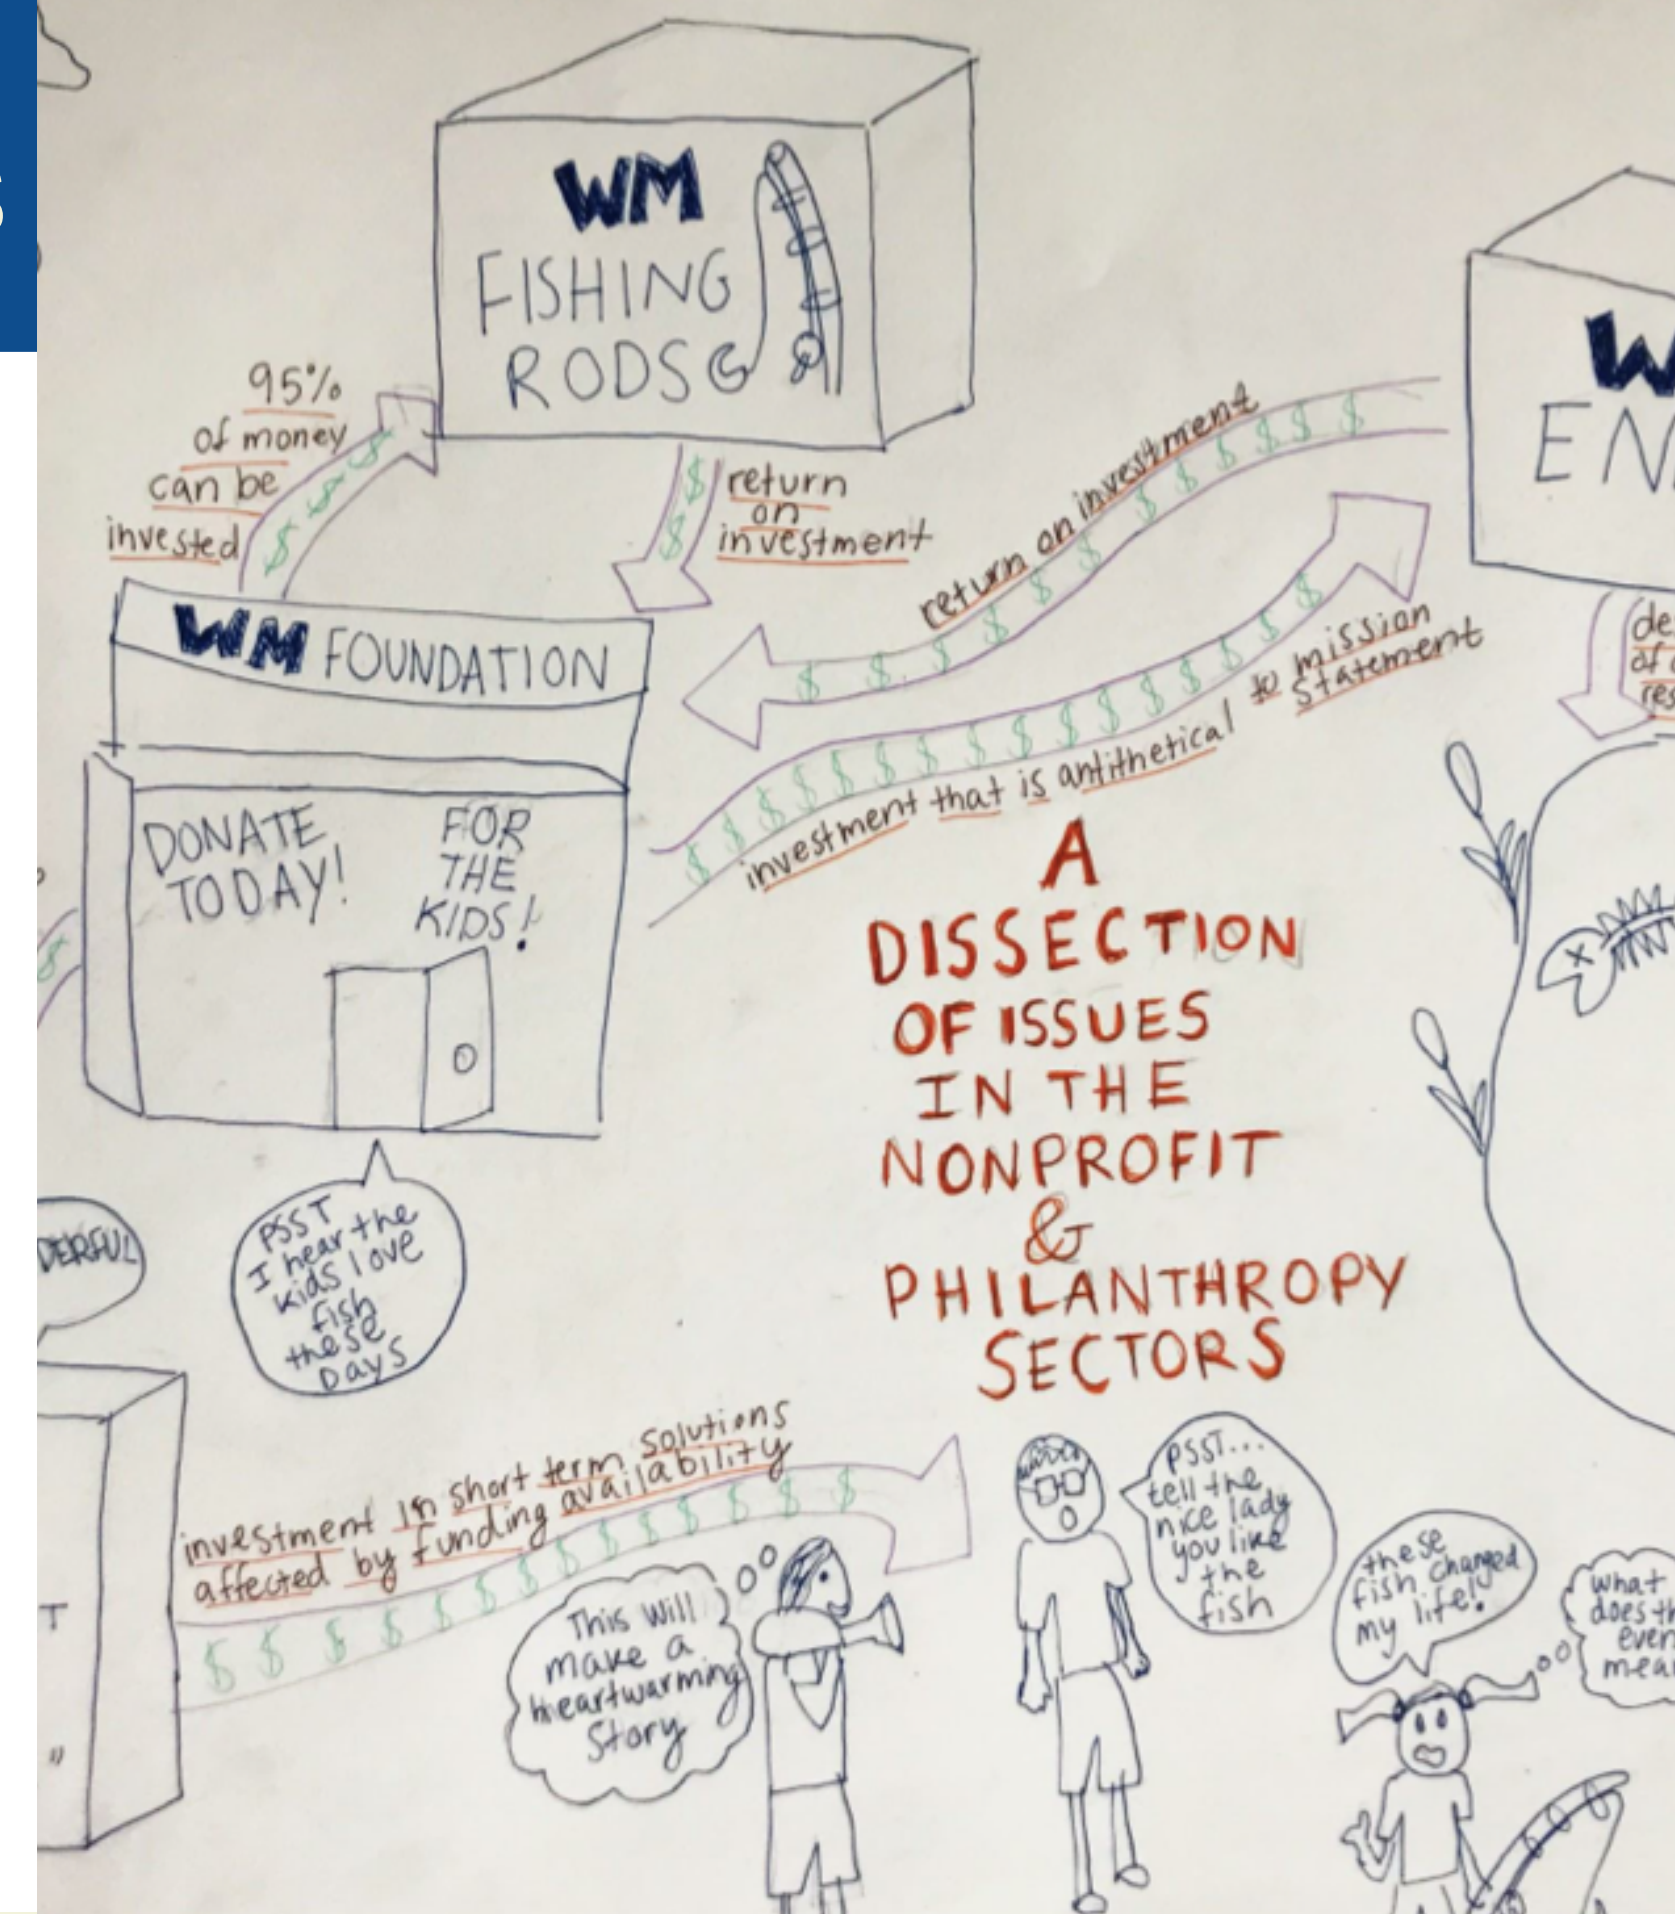 S
WM
FISHING
RODS
95%
of money
can be
invested
return
on
investment
return on investment
W
EN
WM FOUNDATION
investment that is antithetical to mission
statement
DONATE
TODAY!
FOR
THE
KIDS!
A
DISSECTION
OF ISSUES
IN THE
NONPROFIT
&
PHILANTHROPY
SECTORS
DERFUL
PSST
I hear the
kids love
fish
these
DAYS
investment in short term solutions
affected by funding availability
T
"
This will
make a
heartwarming
Story
PSST...
tell the
nice lady
you like
the
fish
these
fish changed
my life!
what
does th
even
mea
de
of
res